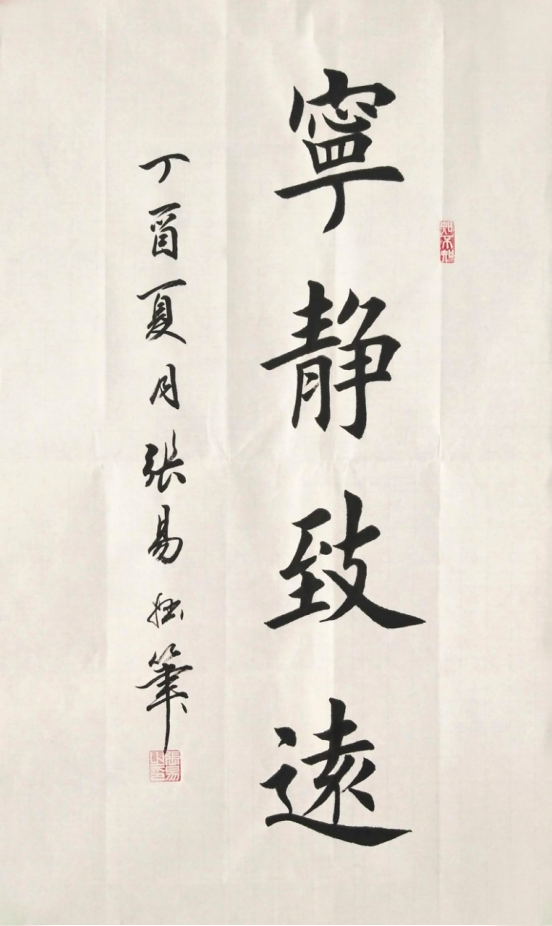 寧静致遠
丁酉夏月張易拙筆